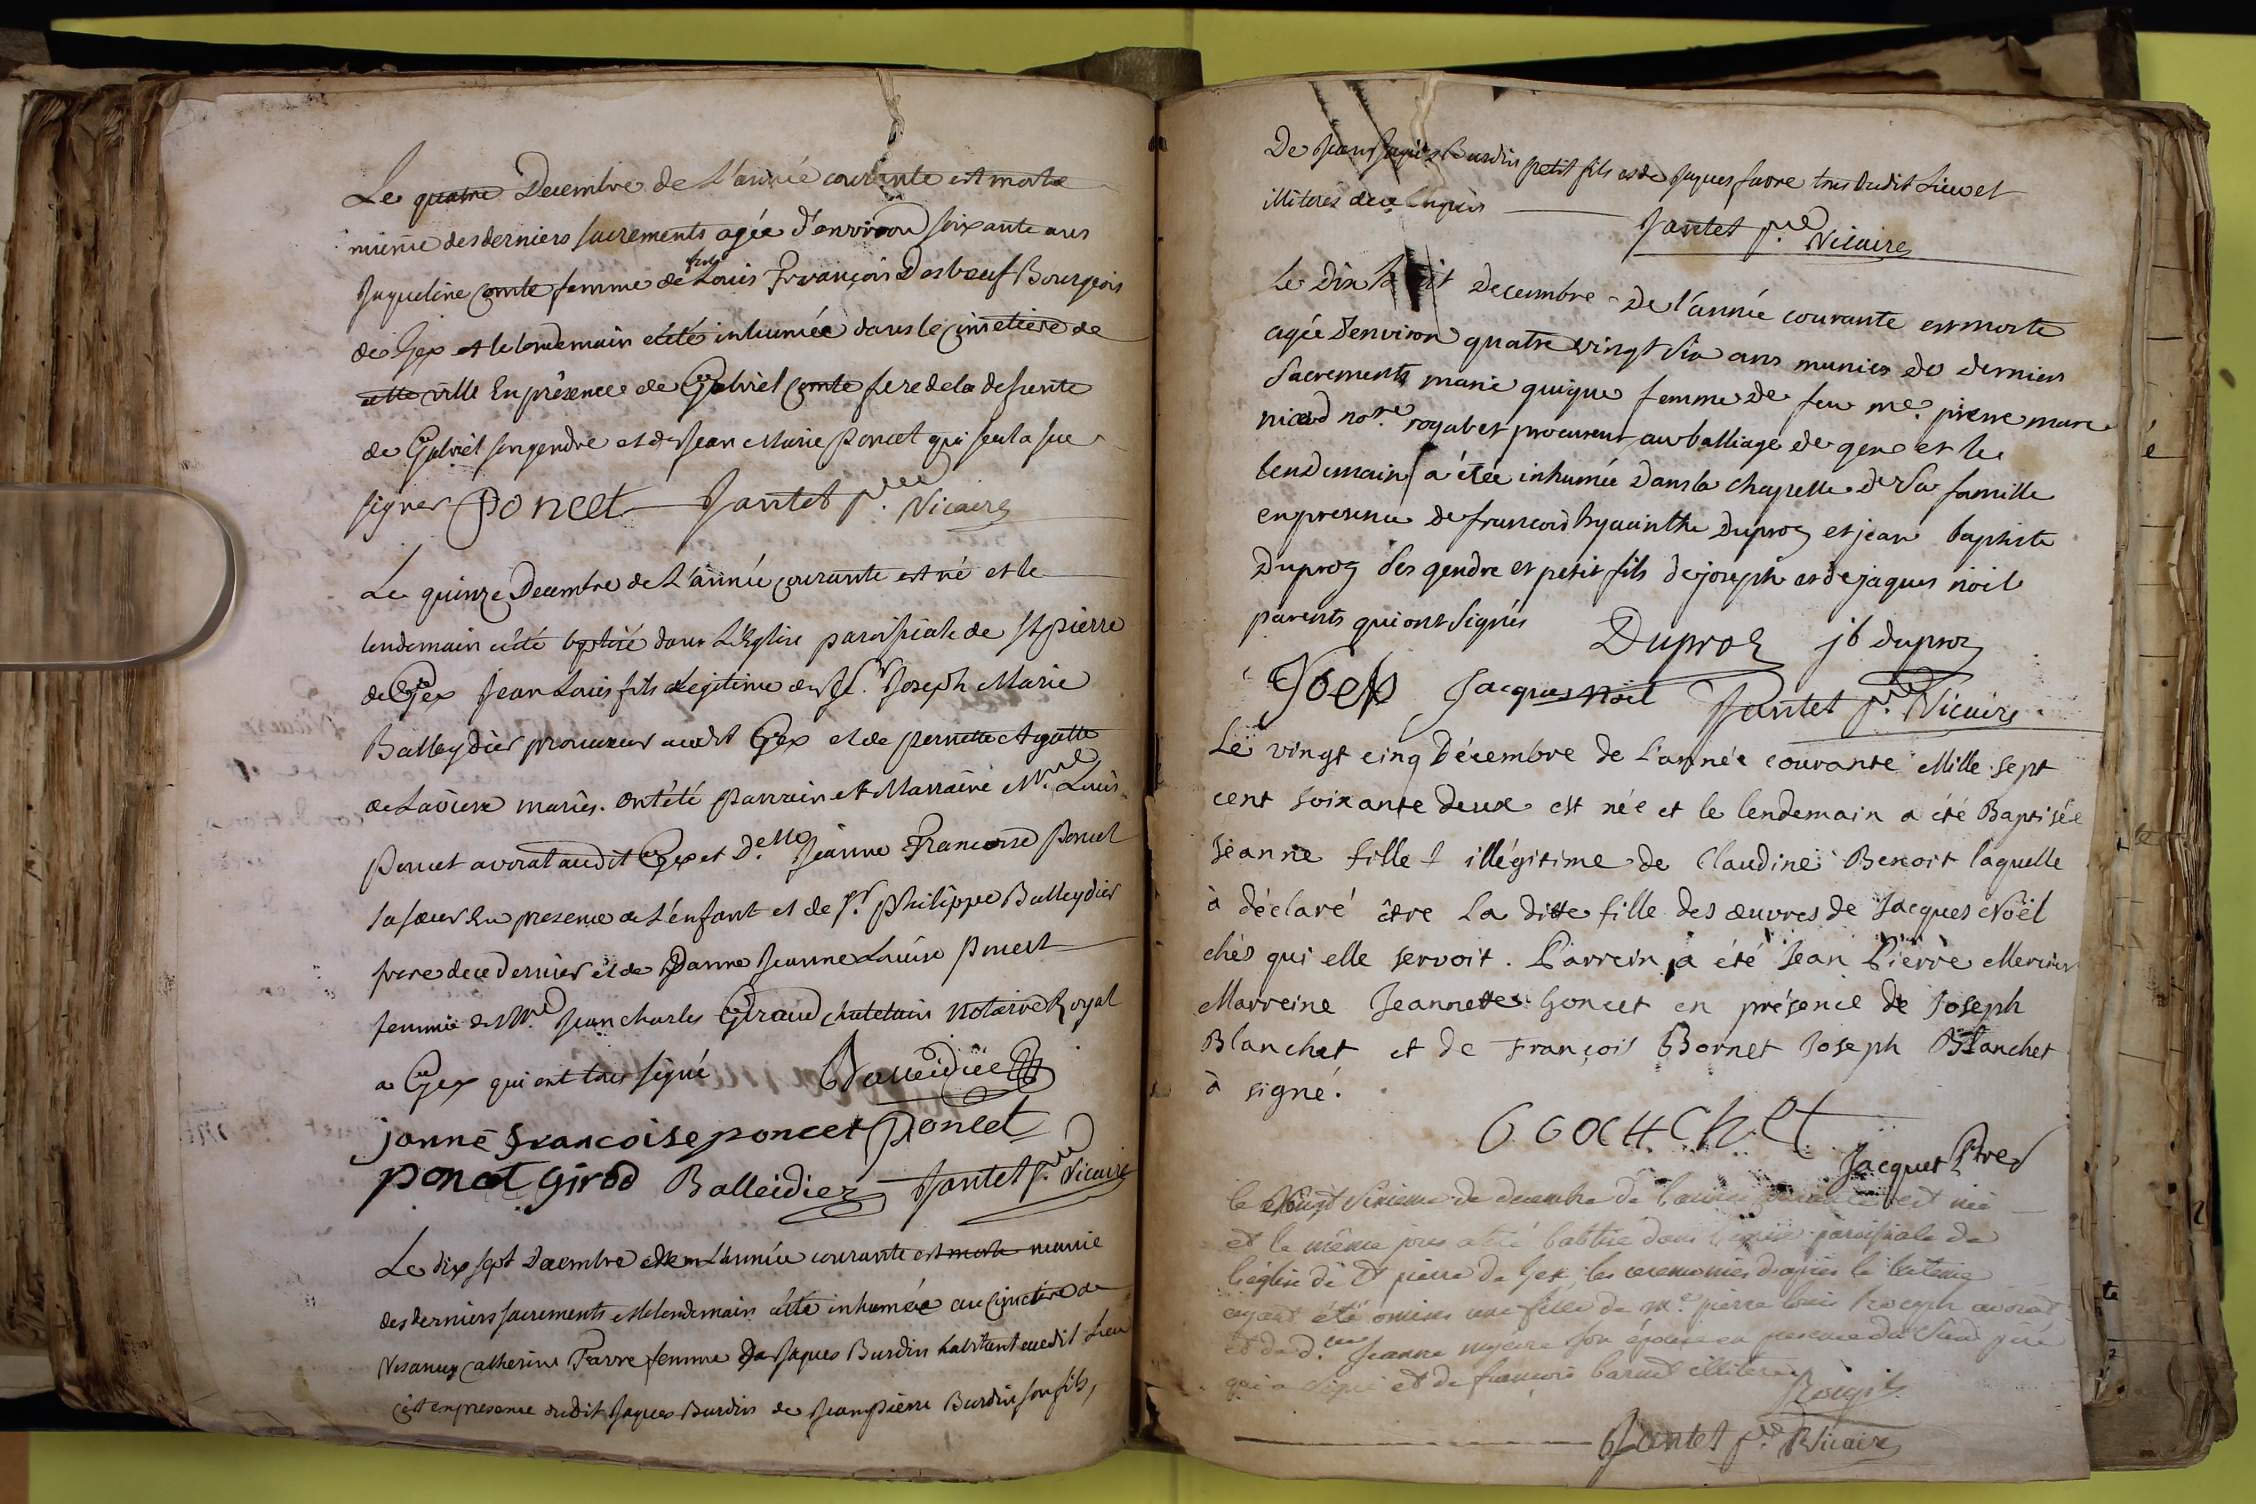 Le quatre Decembre de L'année courante est morte
munie des derniers sacrements agée d'environ soixante ans
Jaqueline Comte femme de Louis François Desboeuf Bourgeois
de Gex et le lendemain a été inhumée dans le cimetiere de
cette ville En présence de Gabriel Comte frere de la defunte
de Gabriel son gendre et de Jean Marie Poncet qui seul a sçu
signer Poncet Jantet p.re Vicaire
Le quinze Decembre de L'année courante est né et le
lendemain a été baptisé dans L'Eglise paroissiale de St pierre
de Gex Jean Louis fils Legitime de Joseph Marie
Balleydier procureur audit Gex et de pernette Agatte
de Laviere mariés. ont été Parrain et Marraine Me. Louis
Poncet avocat audit Gex et D.elle Jeanne Francoise Poncet
sa sœur En presence de L'enfant et de Sr. Philippe Balleydier
frere de ce dernier et de Danne Jeanne Louise Poncet
femme de Me. Jean Charles Giraud chatelain Notaire Royal
a Gex qui ont tous signé Balleidier
janne francoise poncet Poncet
poncet girod Balleidier Jantet p.re Vicaire
Le dix sept Decembre de L'année courante est morte munie
des derniers sacrements et le lendemain a été inhumée au cimetiere de
Catherine Favre femme de Jaques Burdin habitant audit Lieu
c'est en presence dudit Jaques Burdin de Jean Pierre Burdin son fils,
De Jean Burdin petit fils et de Jaques favre tous dudit Lieu et
illiteres de ce Enquis
Jantet p.re Vicaire
Le Dix huit Decembre de l'année courante est morte
agée d'environ quatre vingt six ans munies des derniers
Sacrements marie quique femme de feu me. pierre marc
nicod no.re royal et procureur au balliage de gex et le
lendemain a étée inhumée Dans la chapelle de Sa famille
en presence de francois hyacinthe Duproz et jean baptiste
Duproz Ses gendre et petit fils de joseph et de jaques noil
parents qui ont Signés Duproz jb duproz
Jacques noël Jantet p.re Vicaire
Le vingt cinq Décembre de L'année courante Mille sept
cent soixante deux est née et le lendemain a été Baptisée
Jeanne fille illégitime de Claudine Benoit laquelle
à déclaré être La ditte fille des œuvres de Jacques Noël
chés qui elle servoit. Parrein a été Jean Pierre Mercier
Marreine Jeannette Goncet en présence de Joseph
Blanchet et de François Bornet Joseph Blanchet
à signé.
Jacquet Ptre
le vingt Sixieme de decembre de l'année courante est née
et le même jour a été batisée dans paroissiale de
l'église de St pierre de Gex, les ceremonies d'après le bateme
ayant été omises une fille de me. pierre louis avocat
et de d.me Jeanne son épouse en presence du
qui a signé et de françois illiteré
Jantet p.re Vicaire